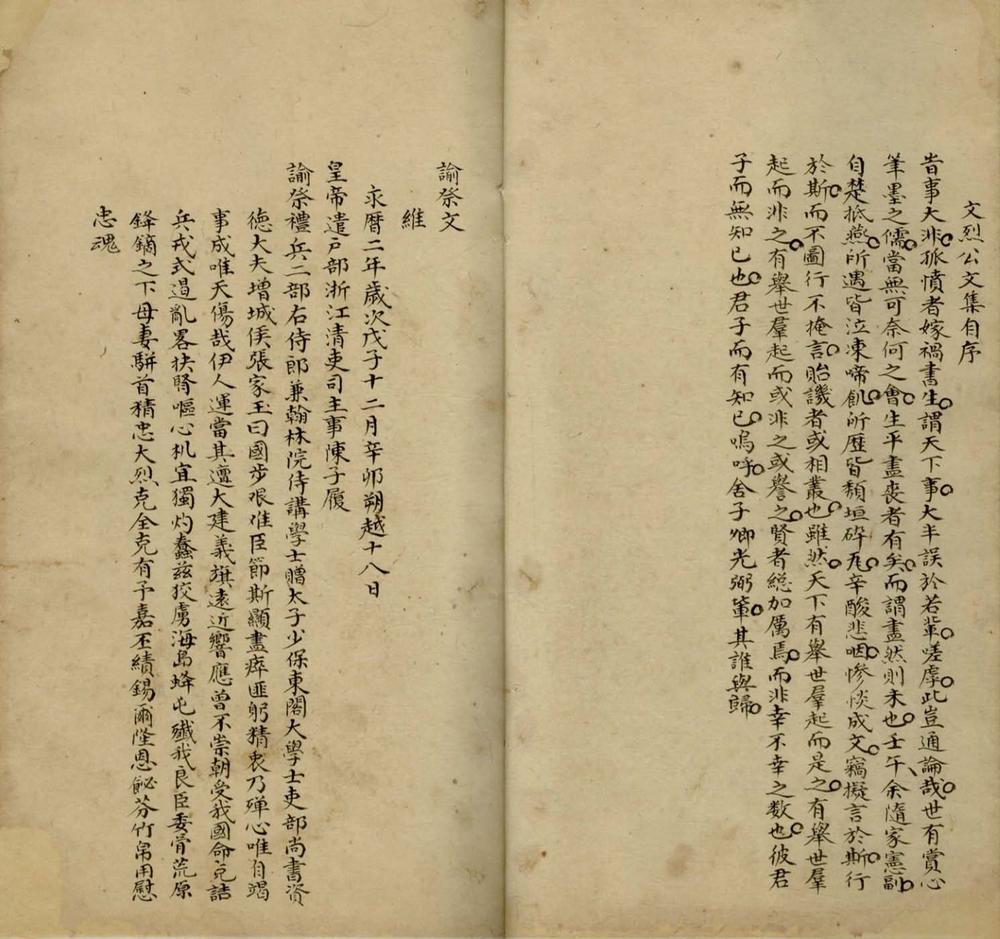 文烈公文集自序
昔事大非孤憤者嫁禍書生謂天下事大半誤於若輩嗟虖此豈通論哉世有賞心
筆墨之儒當無可奈何之會生平盡喪者有矣而謂盡然則未也壬午余隨家憲副
自楚抵燕所遇皆泣凍啼飢所歷皆頹垣碎瓦辛酸悲咽慘惔成文竊擬言於斯行
於斯而不圖行不掩言貽譏者或相叢也雖然天下有舉世羣起而是之有舉世羣
起而非之有舉世羣起而或非之或譽之賢者総加厲焉而非幸不幸之数也彼君
子而無知已也君子而有知已嗚呼舍子卿光弼軰其誰與歸
諭祭文
維
永曆二年歲次戊子十二月辛卯朔越十八日
皇帝遣戶部浙江清吏司主事陳子履
諭祭禮兵二部右侍郎兼翰林院侍講學士贈太子少保東閣大學士吏部尚書資
德大夫增城侯張家玉曰國步艱难臣節斯顯盡瘁匪躬精衷乃殫心唯自竭
事成唯天傷哉伊人運當其邅大建義旗遠近響應曾不崇朝受我國命克詰
兵戎式遏亂畧抉腎嘔心机宜獨灼蠢兹狡虜海島蜂屯殲我良臣委骨荒原
鋒鏑之下母妻駢首精忠大烈克全克有予嘉丕績錫爾隆恩飶芬竹帛用慰
忠魂